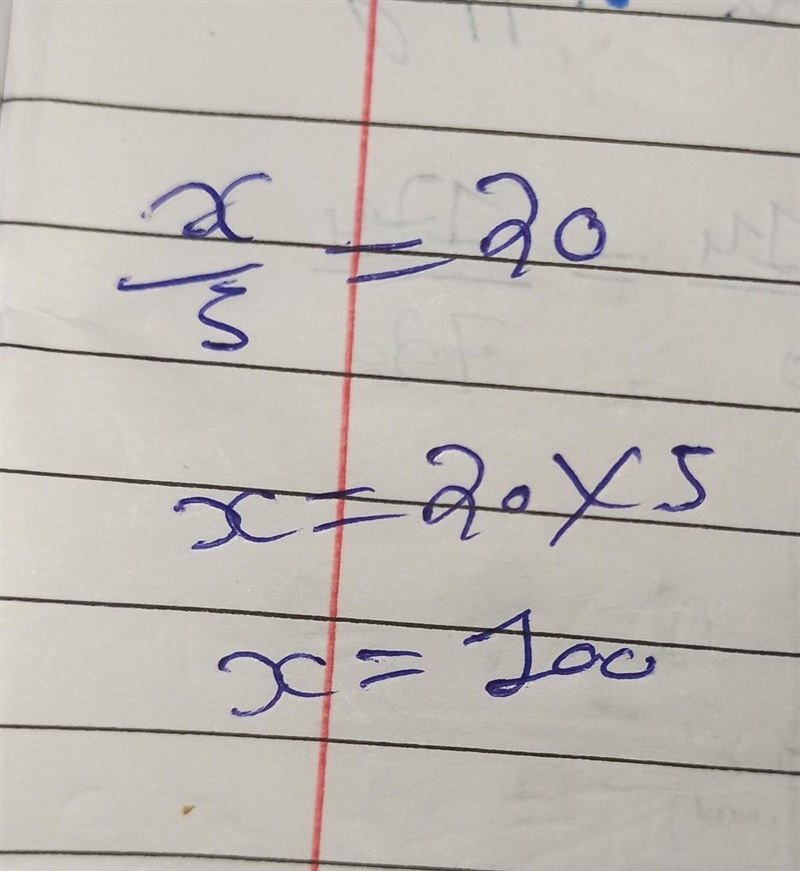 x/5 = 20
x = 20 × 5
x = 100